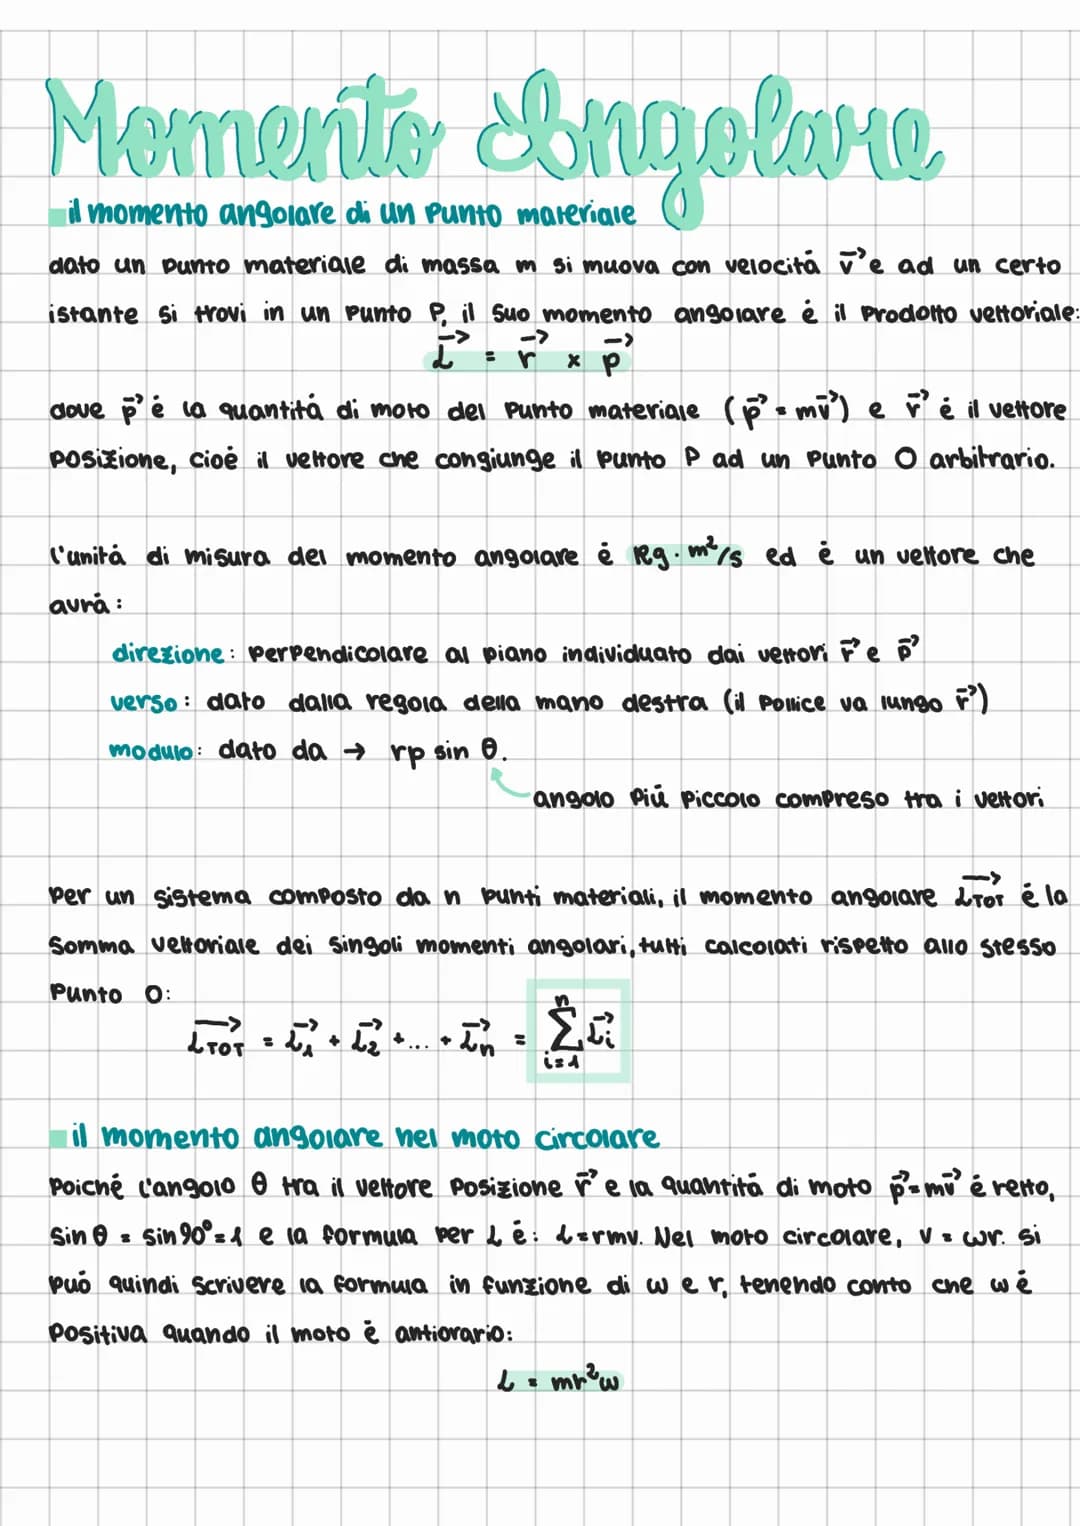 Momento Angolare
il momento angolare di un punto materiale
dato un punto materiale di massa m si muova con velocità v⃗ e ad un certo
istante si trovi in un punto P, il suo momento angolare è il prodotto vettoriale:
L⃗ = r⃗ × p⃗
dove p⃗ è la quantità di moto del punto materiale (p⃗ = mv⃗) e r⃗ è il vettore
posizione, cioè il vettore che congiunge il punto P ad un punto O arbitrario.
l'unità di misura del momento angolare è kg · m²/s ed è un vettore che
avrà:
direzione: perpendicolare al piano individuato dai vettori r⃗ e p⃗
verso: dato dalla regola della mano destra (il pollice va lungo r⃗)
modulo: dato da → rp sin θ.
angolo più piccolo compreso tra i vettori
per un sistema composto da n punti materiali, il momento angolare L⃗TOT è la
somma vettoriale dei singoli momenti angolari, tutti calcolati rispetto allo stesso
punto O:
L⃗TOT = L⃗₁ + L⃗₂ + ... + L⃗n = n∑i=1 L⃗i
il momento angolare nel moto circolare
poiché l'angolo θ tra il vettore posizione r⃗ e la quantità di moto p⃗ = mv⃗ è retto,
sin θ = sin 90° = 1 e la formula per L è: L = rmv. Nel moto circolare, v = ωr. si
può quindi scrivere la formula in funzione di ω e r, tenendo conto che ω è
positiva quando il moto è antiorario:
L = mr²ω